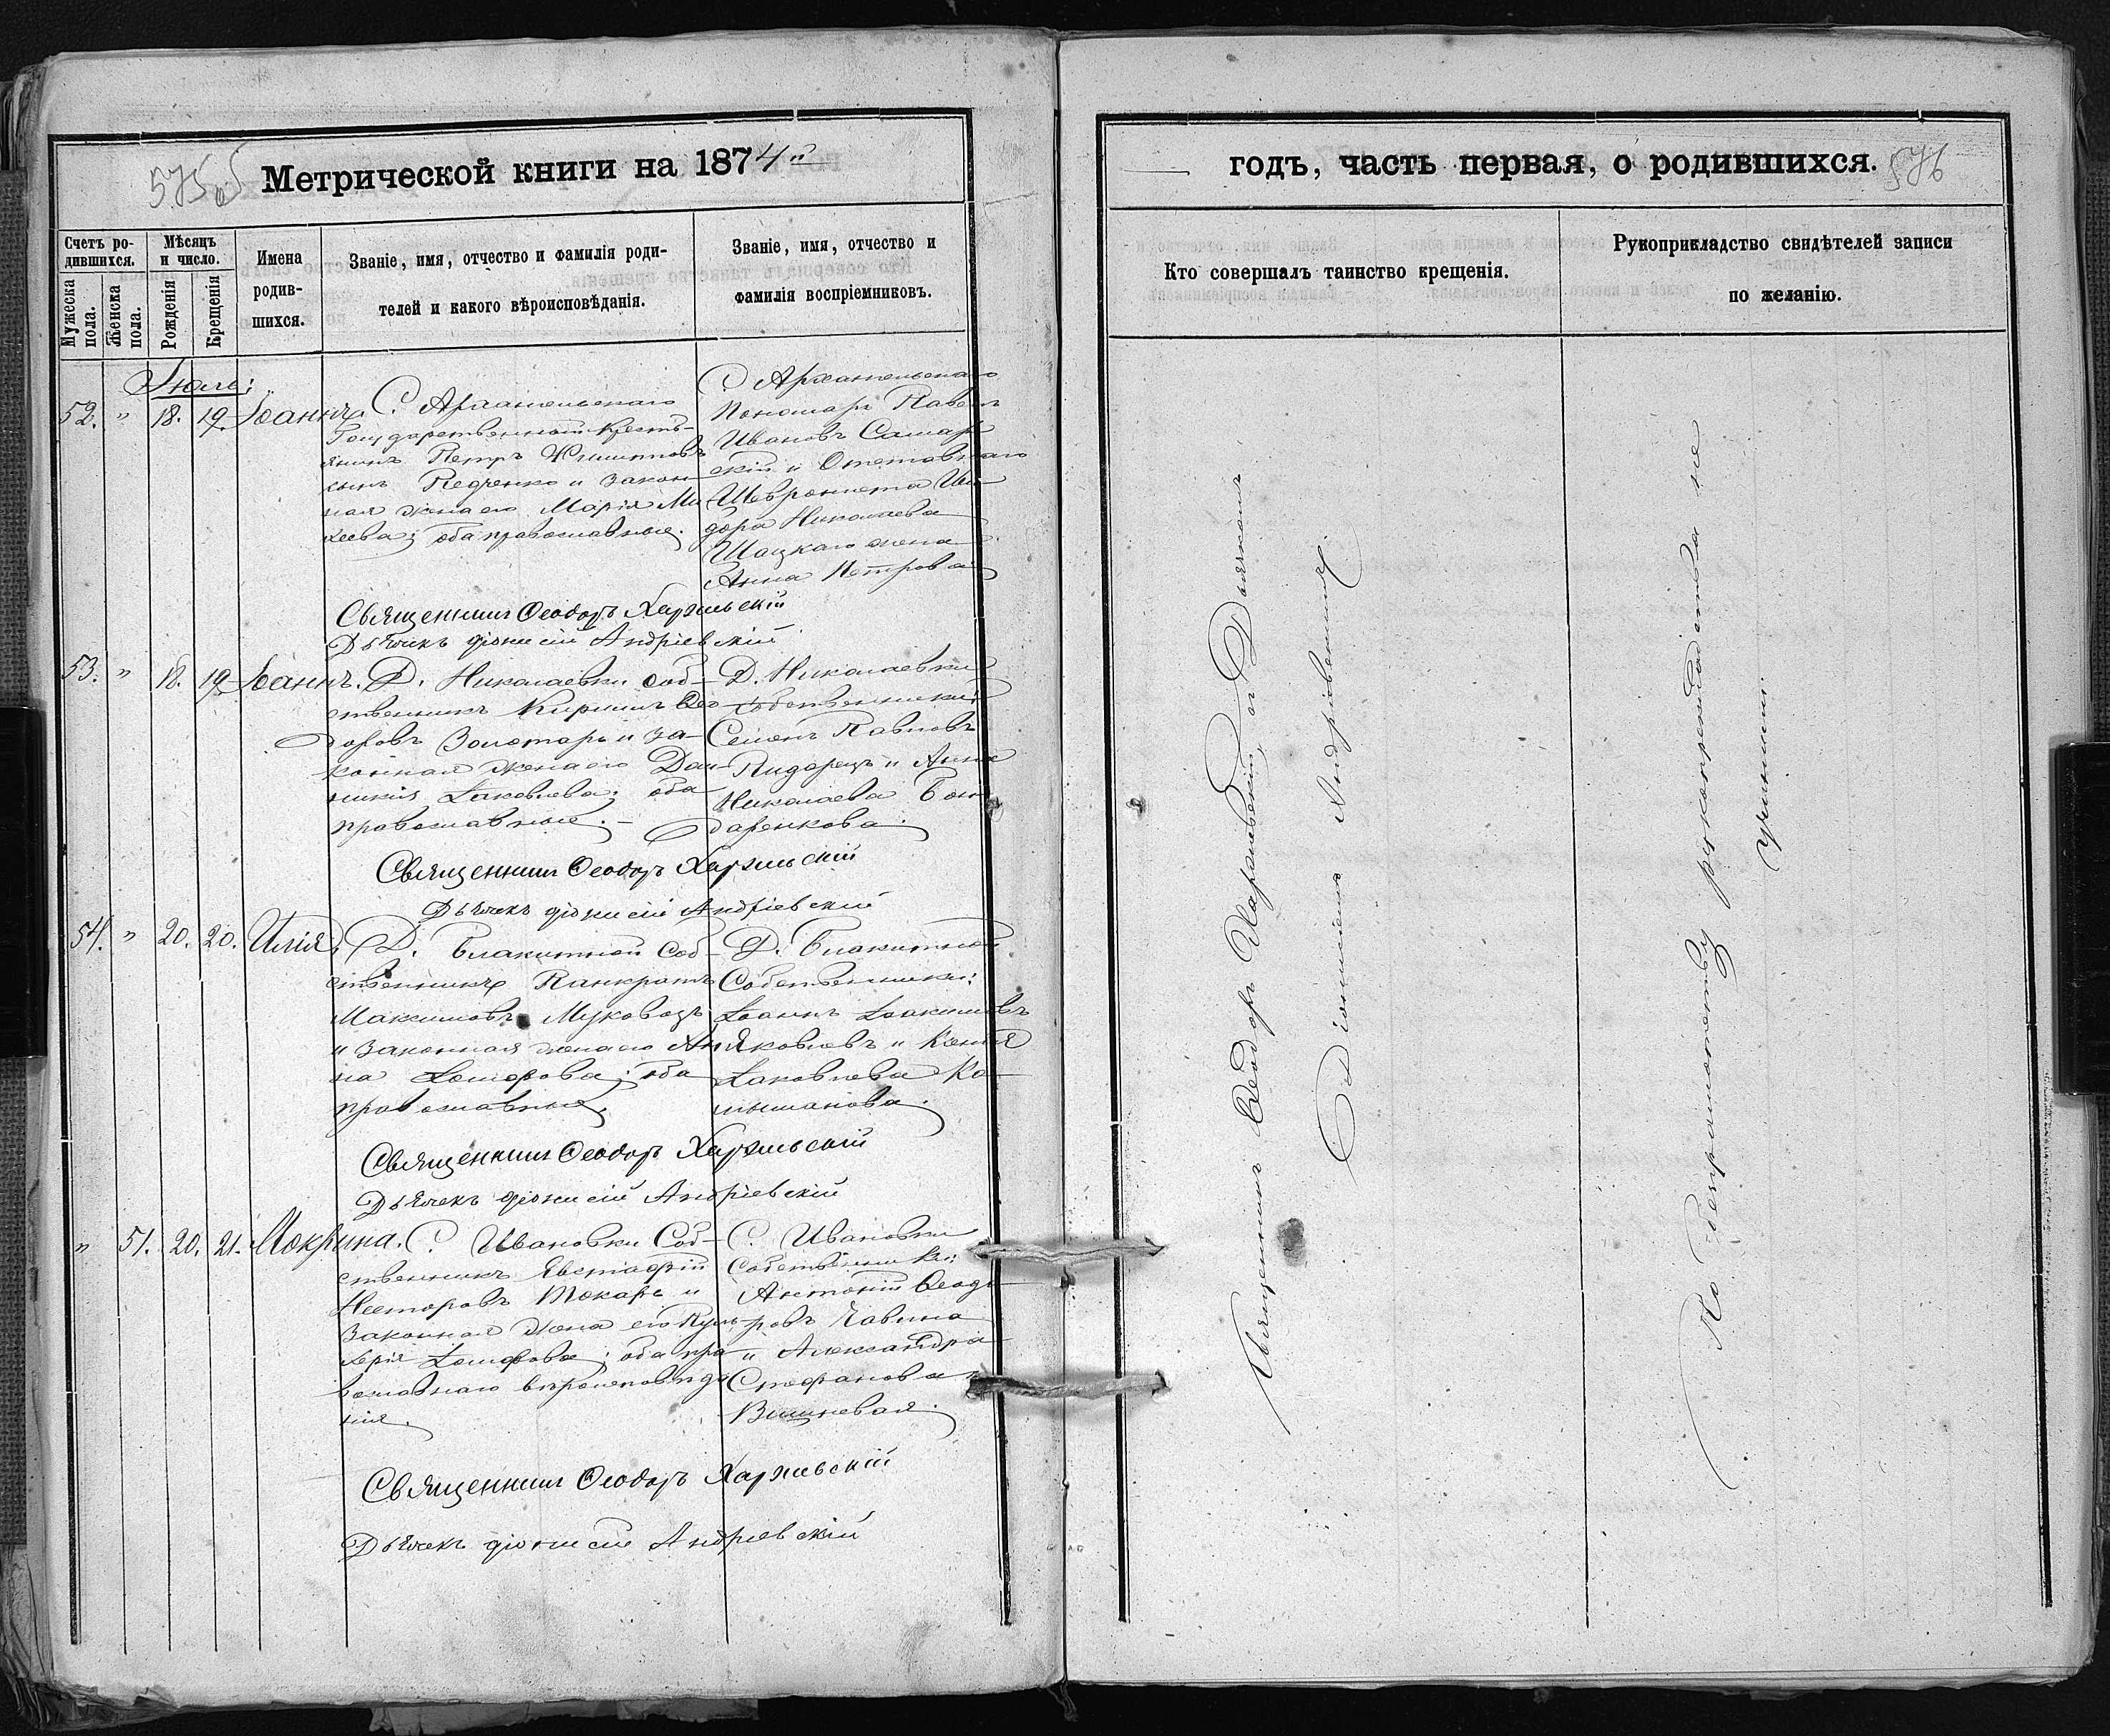 575 об
Метрической книги на 1874й
Счетъ ро-
дившихся.
Мужеска
пола.
Женска
пола.
Мѣсяцъ
и число.
Рожденія
Крещенія
Имена
родив-
шихся.
Званіе, имя, отчество и фамилія роди-
телей и какого вѣроисповѣданія.
Званіе, имя, отчество и
фамилія воспріемниковъ.
Іюль:
52. " 18. 19. Іоаннъ.
С. Архангельскаго
Государственный кресть-
янинъ Петръ
сынъ Педченко и закон
ная жена его Марія Ми
хеева; оба православные.
С. Архангельскаго
Пономарь Павелъ
Ивановъ Самар
скій и Отставнаго
Унтеръ
дора Николаева
Шацкаго жена
Анна Петрова
Священникъ Ѳеодоръ
Дьячекъ Діонисій Андріевскій
53. " 18. 19. Іоаннъ.
Д. Николаевки соб-
ственникъ Кириллъ Ѳео
доровъ Золотарь и за-
конная жена его Дом-
никія Іаковлева; оба
православные.
Д. Николаевки
собственники:
Семенъ Павловъ
и Анна
Николаева Бон
даренкова.
Священникъ Ѳеодоръ
Дьячекъ Діонисій Андріевскій
54. " 20. 20. Илія.
Д. Блакитной Соб-
ственникъ Панкратъ
Максимовъ Муковозъ
и законная жена его Ан
на; оба
православные.
Д. Блакитной
Собственники:
Іоаннъ Іоакимовъ
Яковлевъ и Ксенія
Іаковлева Ка-
мышанова.
Священникъ Ѳеодоръ
Дьячекъ Діонисій Андріевскій
" 51. 20. 21. Макрина.
С. Ивановки Соб-
ственникъ Евстафій
Несторовъ Токарь и
законная жена его Пуль-
херія; оба пра
вославнаго вѣроисповѣда
нія.
С. Ивановки
Собственники:
Антоній Ѳеодо
ровъ
и Александра
Стефанова
Вишневая.
Священникъ Ѳеодоръ
Дьячекъ Діонисій Андріевскій
годъ, часть первая, о родившихся.
576
Кто совершалъ таинство крещенія.
Рукоприкладство свидѣтелей записи
по желанію.
Священникъ Ѳеодоръ съ Дьячкомъ
Діонисіемъ Андріевскимъ.
По безграмотству рукоприкладства не
учинили.